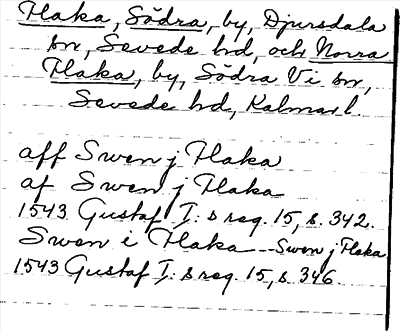 Flaka, Södra, by, Djursdala
sn, Sevede hd, och Norra
Flaka, by, Södra Vi sn,
Sevede hd, Kalmar l.
aff Swen j Flaka
af Swen j Flaka
1543 Gustaf I:s reg. 15, s. 342.
Swen i Flaka - Swen j Flaka
1543 Gustaf I:s reg. 15, s. 346.